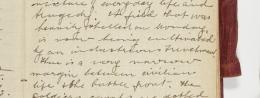 mixture of everyday life and
tragedy. A field that was
heavily shelled on Monday
is now being cultivated
by an industrious Frenchman.
There is a very narrow
margin between civilian
life & the battle front. The